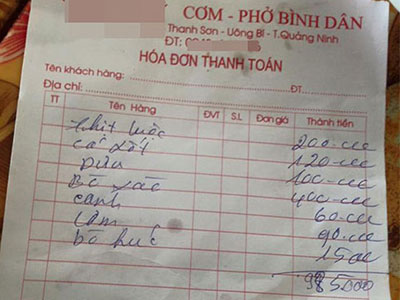 CƠM - PHỞ BÌNH DÂN
Thanh Sơn - Uông Bí - T.Quảng Ninh
ĐT:
HÓA ĐƠN THANH TOÁN
Tên khách hàng: ĐT
Địa chỉ:
TT Tên Hàng ĐVT S.L Đơn giá Thành tiền
thịt luộc 200.000
cá sốt 120.000
Dưa 100.000
Bò xào 400.000
canh 60.000
cơm 90.000
bò húc 15000
985000